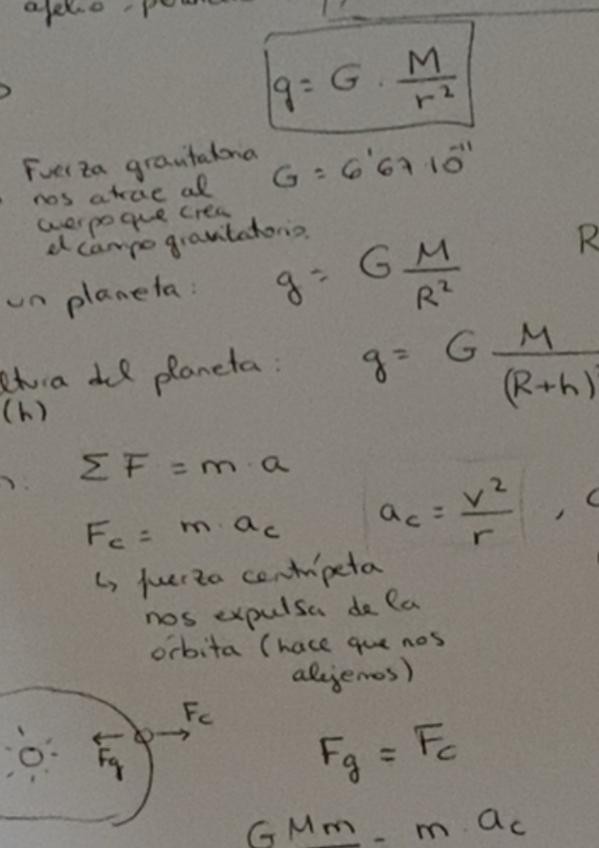 afelio
g = G · M/r²
Fuerza gravitatoria
nos atrae al
cuerpo que crea
el campo gravitatorio.
G = 6'67·10⁻¹¹
R
un planeta: g = G M/R²
ltura del planeta: g = G M/(R+h)²
(h)
Σ F = m · a
Fc = m · ac
ac = v²/r ,
↳ fuerza centrípeta
nos expulsa de la
órbita (hace que nos
alejemos)
Fc
Fg
Fg = Fc
GMm = m · ac